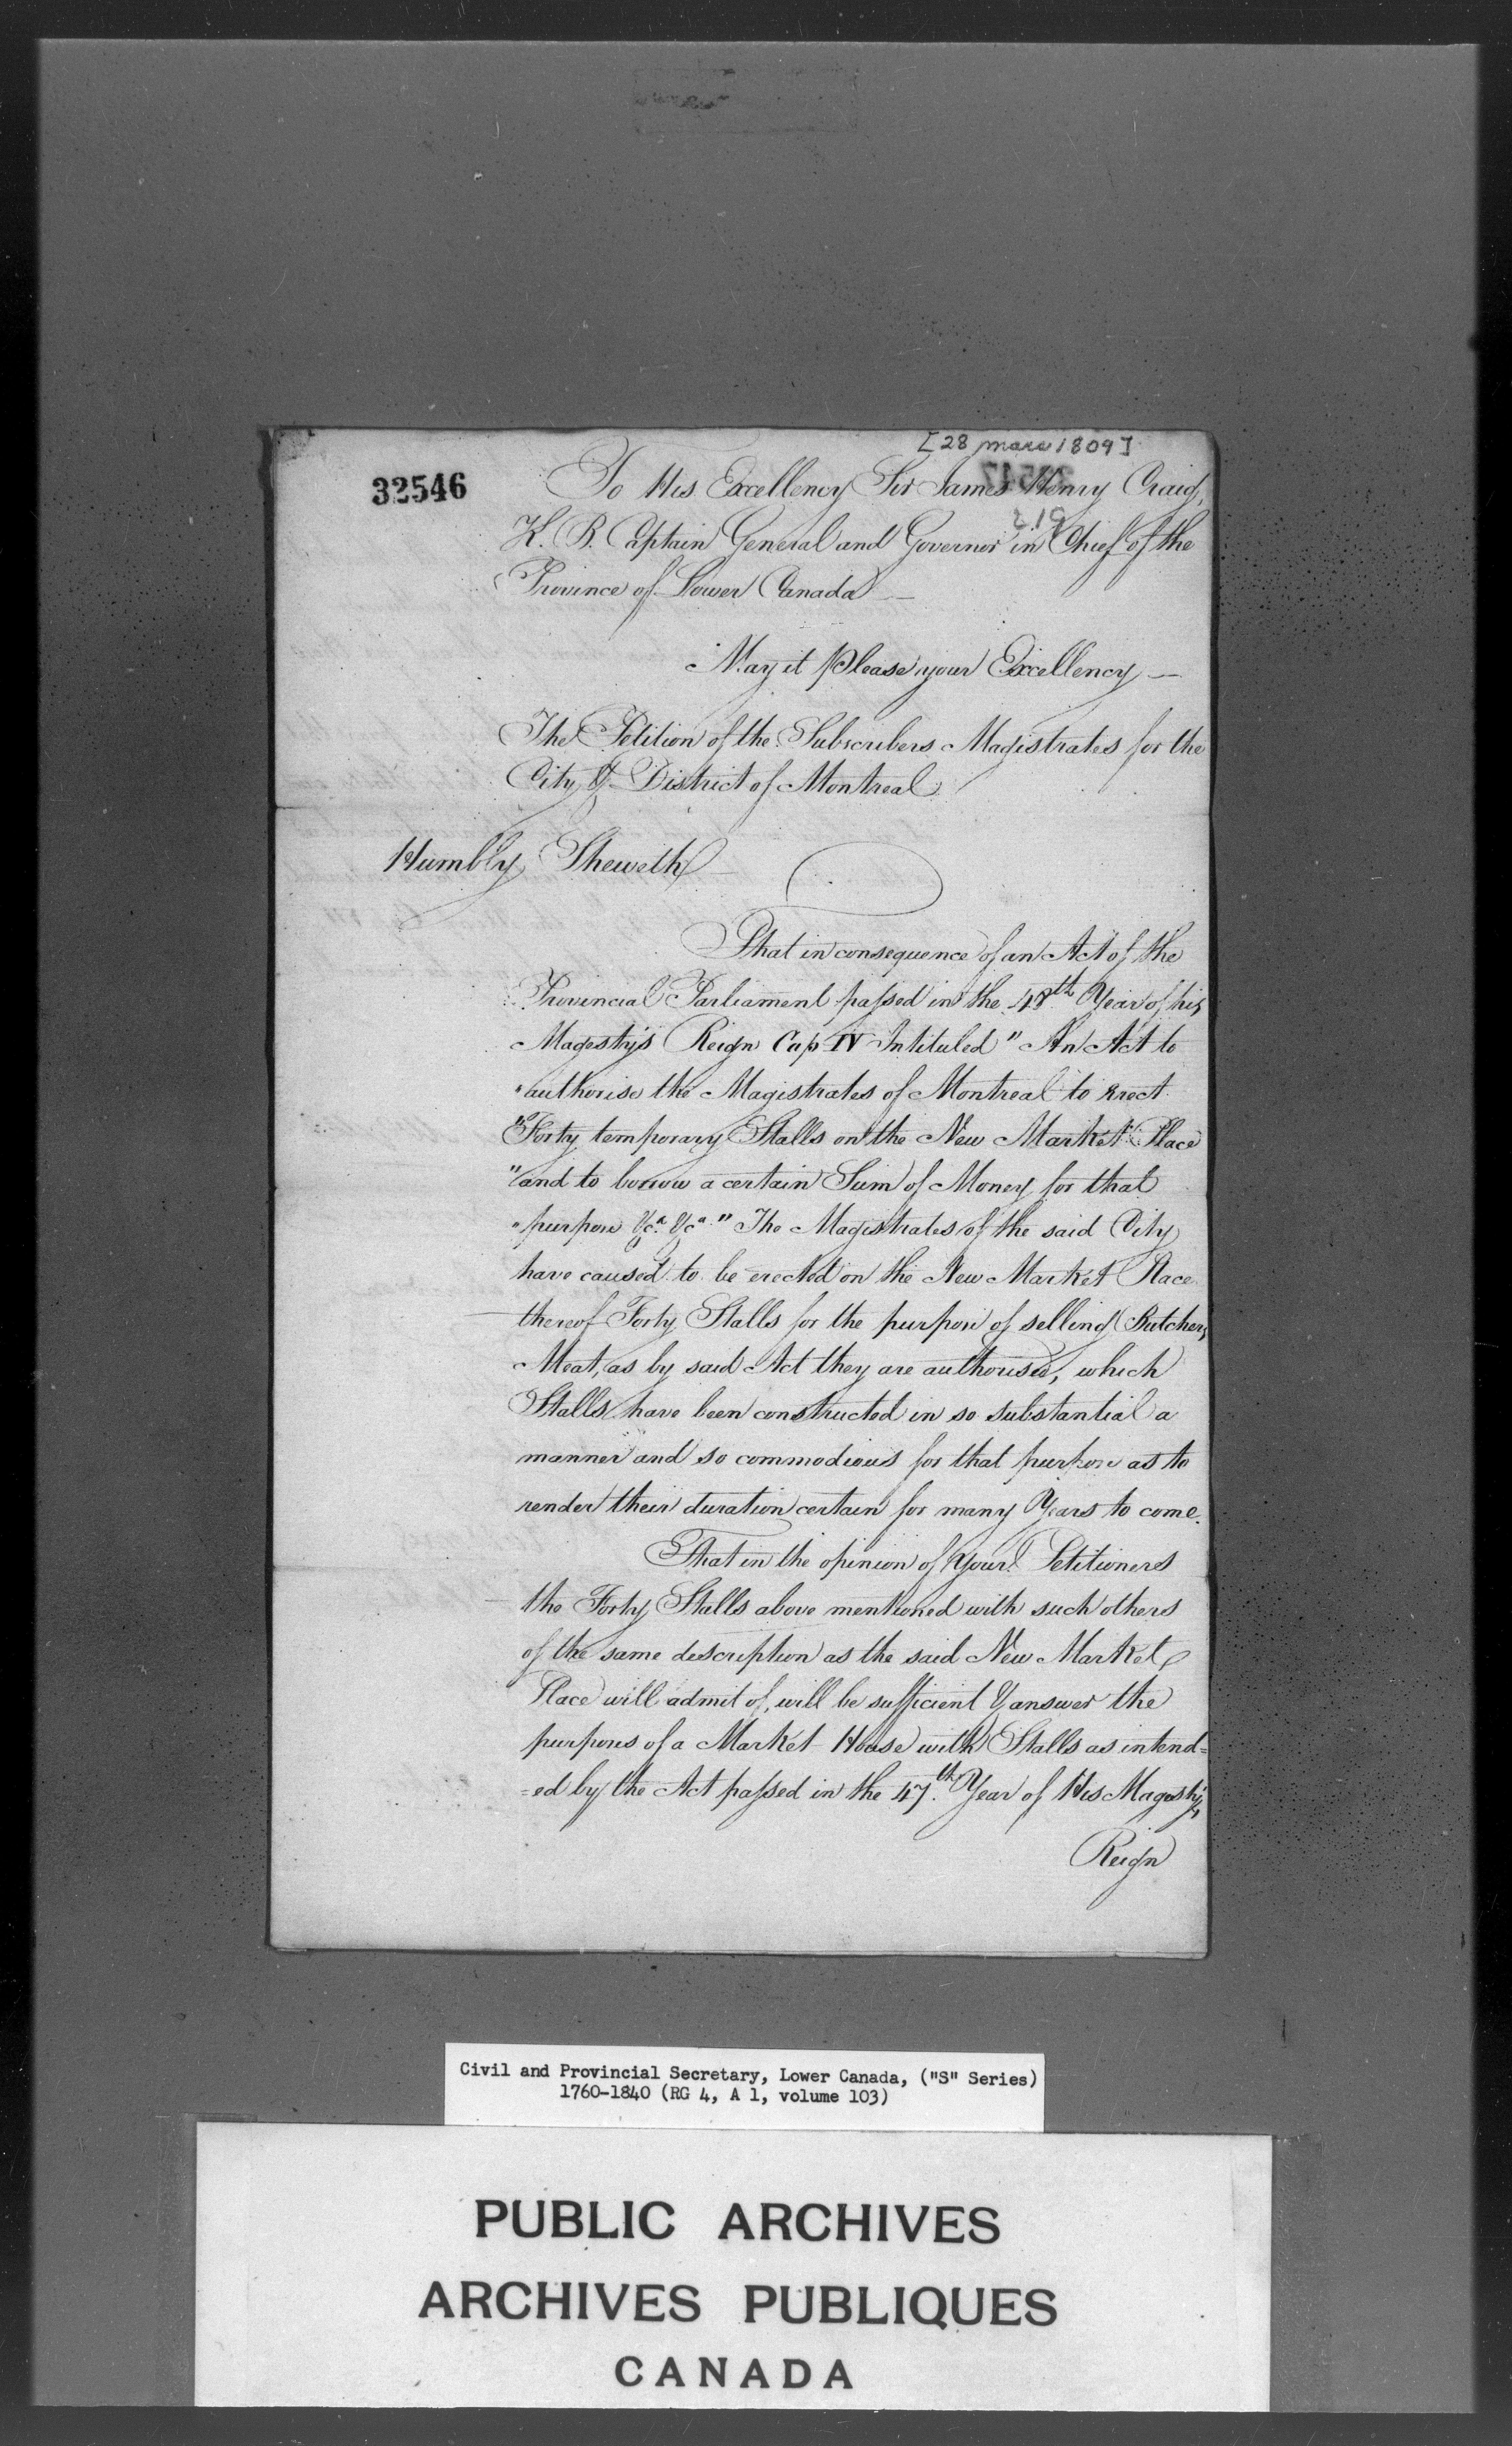 [28 mars 1809]
32546
To His Excellency Sir James Henry Craig,
K. B. Captain General and Governor in Chief of the
Province of Lower Canada —
May it please your Excellency —
The Petition of the Subscribers Magistrates for the
City & District of Montreal
Humbly Sheweth
That in consequence of an Act of the
Provincial Parliament passed in the 48th Year of his
Magesty's Reign Cap IV Intituled "An Act to
"authorise the Magistrates of Montreal to erect
"Forty temporary Stalls on the New Market Place
"and to borrow a certain Sum of Money for that
"purpose &ca. &ca." The Magistrates of the said City
have caused to be erected on the New Market Place
thereof Forty Stalls for the purpose of selling Butchers
Meat, as by said Act they are authorised, which
Stalls have been constructed in so substantial a
manner and so commodious for that purpose as to
render their duration certain for many Years to come.
That in the opinion of Your Petitioners
the Forty Stalls above mentioned with such others
of the same description as the said New Market
Place will admit of, will be sufficient to answer the
purposes of a Market House with Stalls as intend=
=ed by the Act passed in the 47th. Year of His Magesty's
Reign
Civil and Provincial Secretary, Lower Canada, ("S" Series)
1760-1840 (RG 4, A 1, volume 103)
PUBLIC ARCHIVES
ARCHIVES PUBLIQUES
CANADA